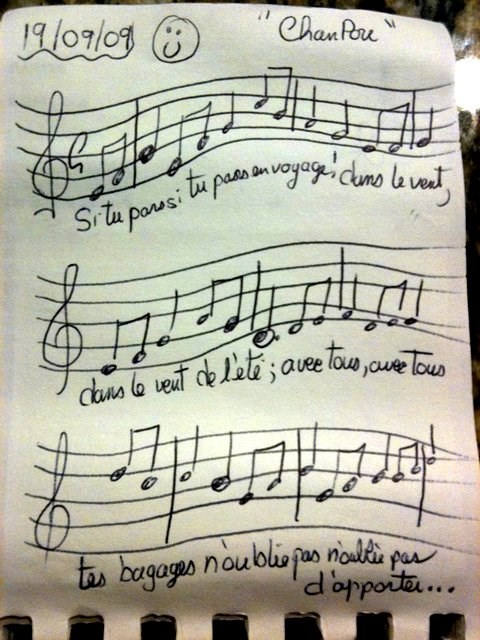 19/09/09 "ChanPorc"
Si tu pars si tu pars en voyage, dans le vent,
dans le vent de l'été; avec tous, avec tous
tes bagages n'oublie pas n'oublie pas
d'apporter...